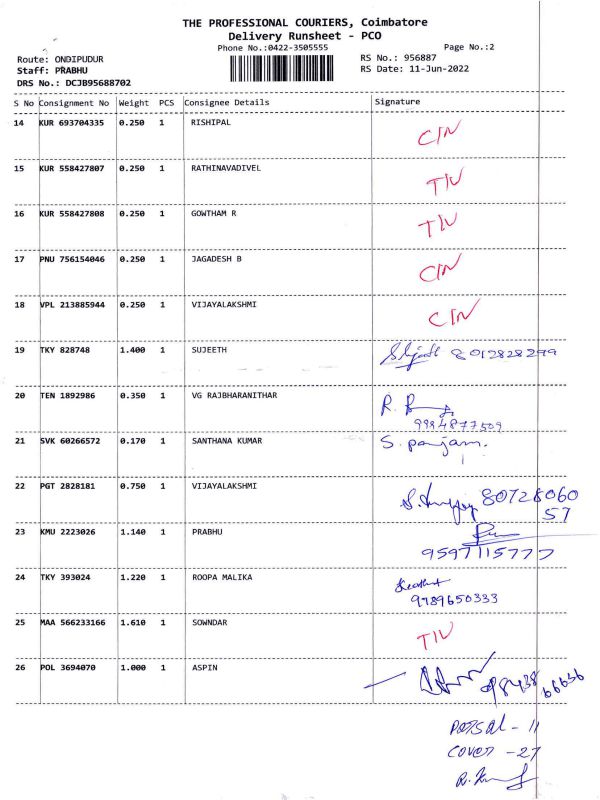 THE PROFESSIONAL COURIERS, Coimbatore
Delivery Runsheet - PCO
Phone No.:0422-3505555 Page No.:2
Route: ONDIPUDUR RS No.: 956887
Staff: PRABHU RS Date: 11-Jun-2022
DRS No.: DCJB95688702
S No Consignment No Weight PCS Consignee Details Signature
14 KUR 693704335 0.250 1 RISHIPAL CIN
15 KUR 558427807 0.250 1 RATHINAVADIVEL TIV
16 KUR 558427808 0.250 1 GOWTHAM R TIV
17 PNU 756154046 0.250 1 JAGADESH B CIN
18 VPL 213885944 0.250 1 VIJAYALAKSHMI CIN
19 TKY 828748 1.400 1 SUJEETH 8012828299
20 TEN 1892986 0.350 1 VG RAJBHARANITHAR R.
9984877509
21 SVK 60266572 0.170 1 SANTHANA KUMAR S. panjam.
22 PGT 2828181 0.750 1 VIJAYALAKSHMI 80728060
57
23 KMU 2223026 1.140 1 PRABHU
9597115777
24 TKY 393024 1.220 1 ROOPA MALIKA
9789650333
25 MAA 566233166 1.610 1 SOWNDAR TIV
26 POL 3694070 1.000 1 ASPIN 98438
66636
- 11
COVER - 27